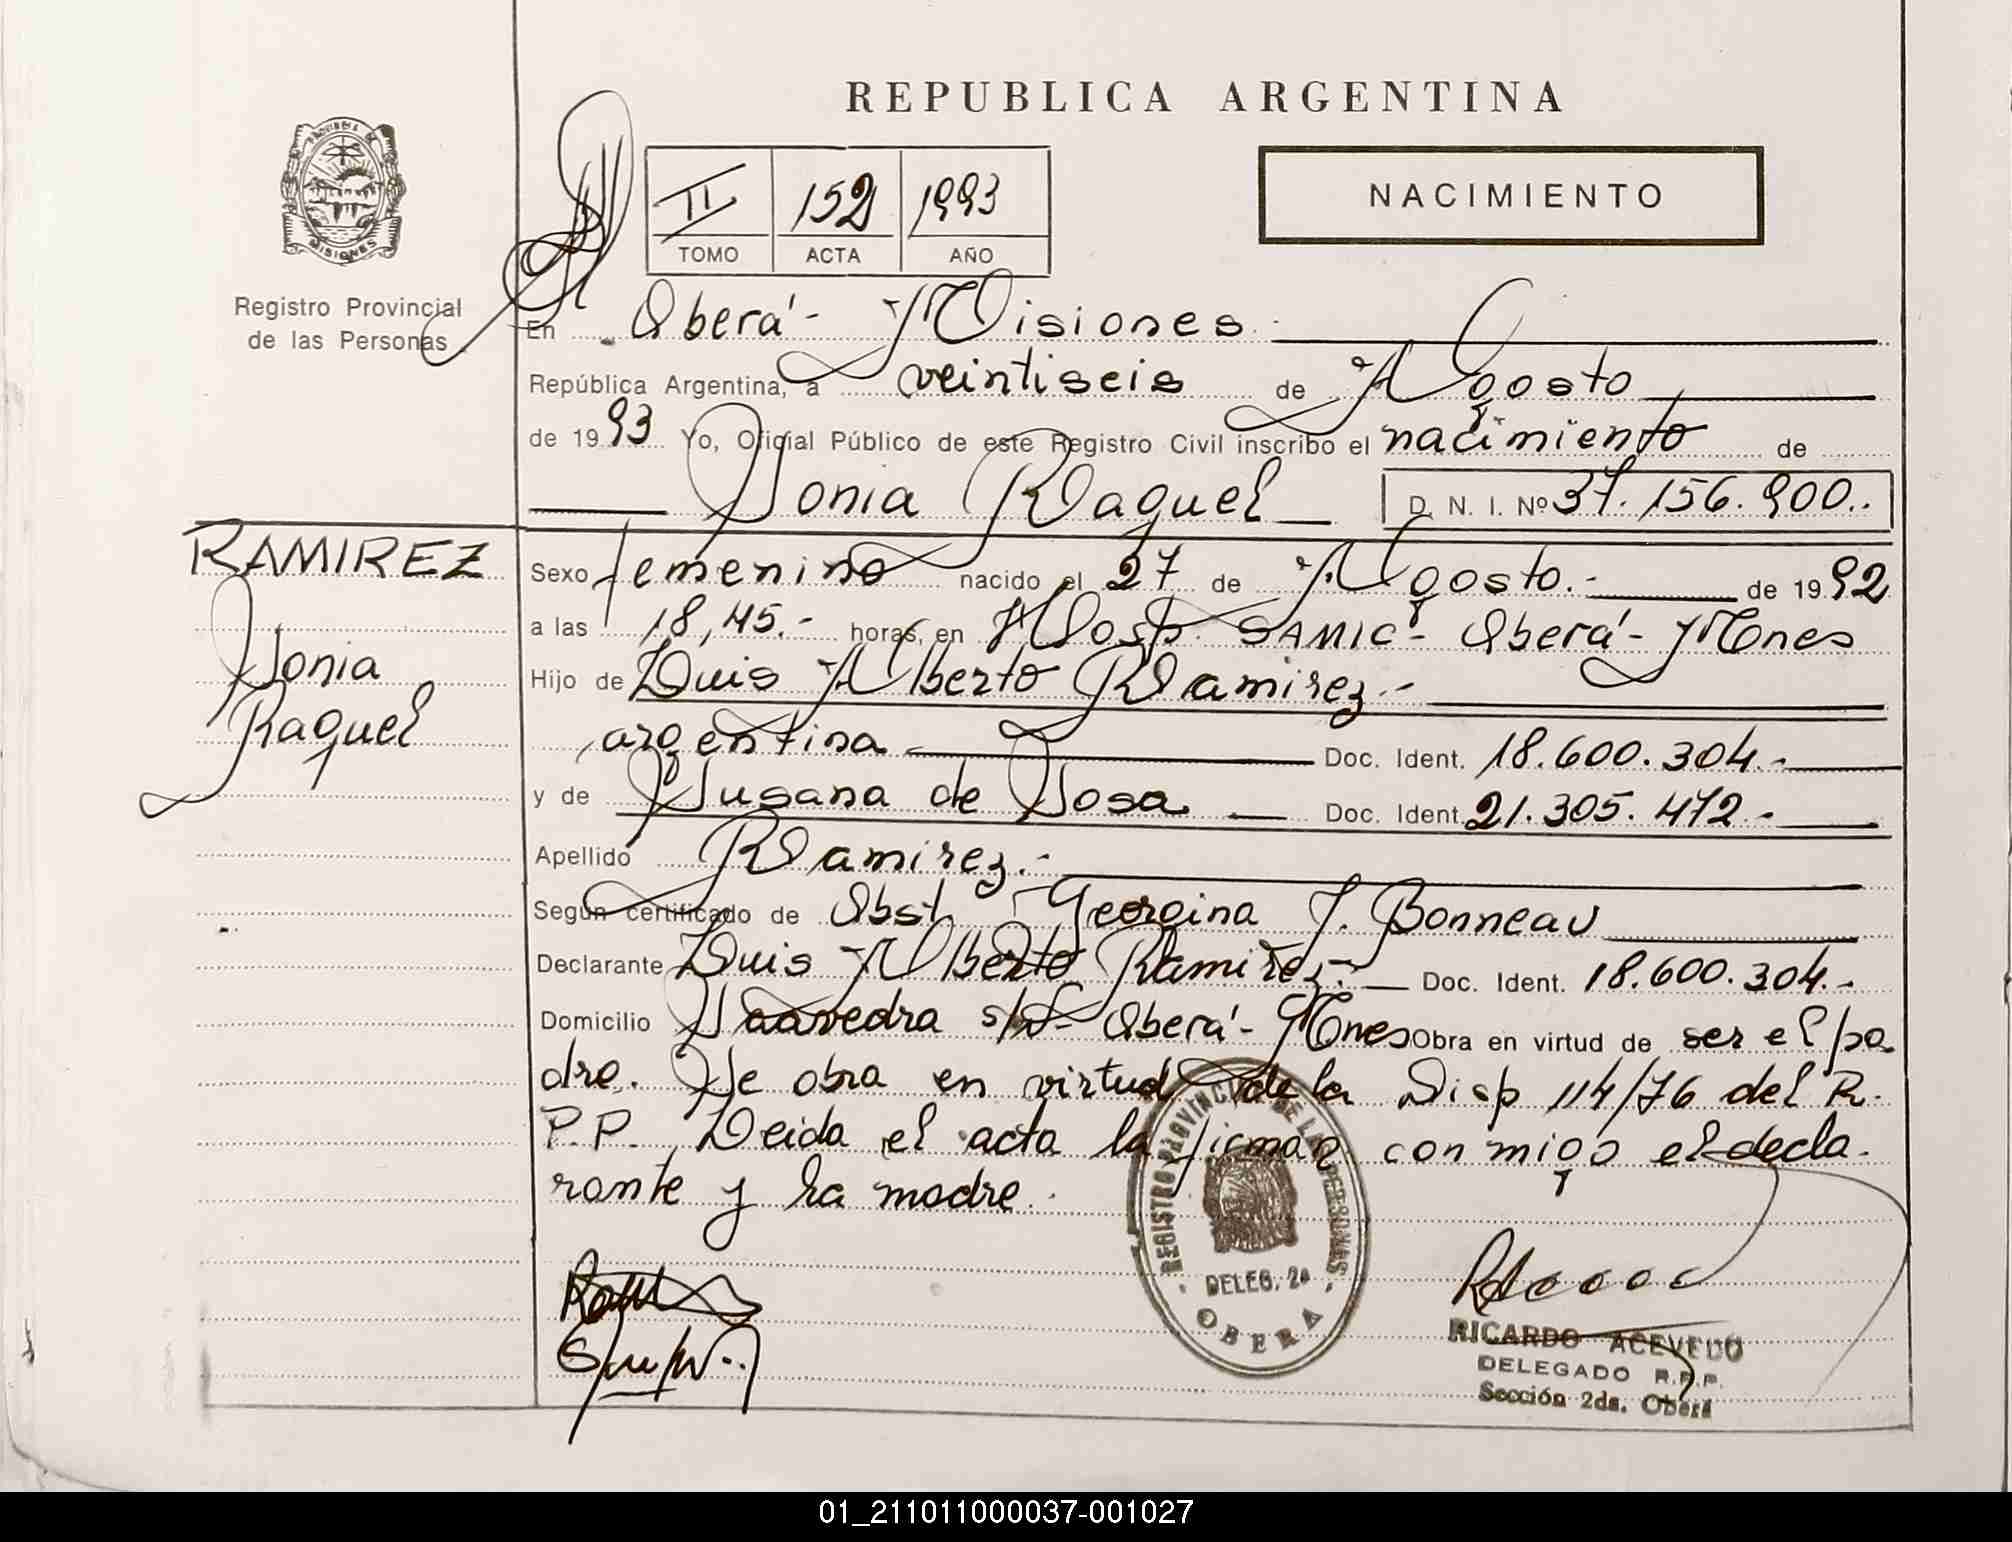 REPUBLICA ARGENTINA
PROVINCIA DE
MISIONES
Registro Provincial
de las Personas
II 152 1993
TOMO ACTA AÑO
NACIMIENTO
En Oberá - Misiones
República Argentina, a veintiseis de Agosto
de 19 93 Yo, Oficial Público de este Registro Civil inscribo el nacimiento de
Sonia Raquel D. N. I. Nº 37.156.900..
RAMIREZ
Sonia
Raquel
Sexo femenino nacido el 27 de Agosto.- de 19 92
a las 18,45.- horas, en Hosp. SAMIC - Oberá - Mnes
Hijo de Luis Alberto Ramirez.-
argentina Doc. Ident. 18.600.304.-
y de Susana de Sosa Doc. Ident. 21.305.472.-
Apellido Ramirez.-
Según certificado de Obst Georgina J. Bonneau
Declarante Luis Alberto Ramirez.- Doc. Ident. 18.600.304.-
Domicilio Saavedra s/N - Oberá - Mnes Obra en virtud de ser el pa
dre. Se obra en virtud de la Disp 114/76 del R.
P.P. Leida el acta la firman conmigo el decla
rante y la madre.
REGISTRO PROVINCIAL DE LAS PERSONAS
DELEG. 2a
OBERA
RICARDO ACEVEDO
DELEGADO R.P.P.
Sección 2da. Oberá
01_211011000037-001027